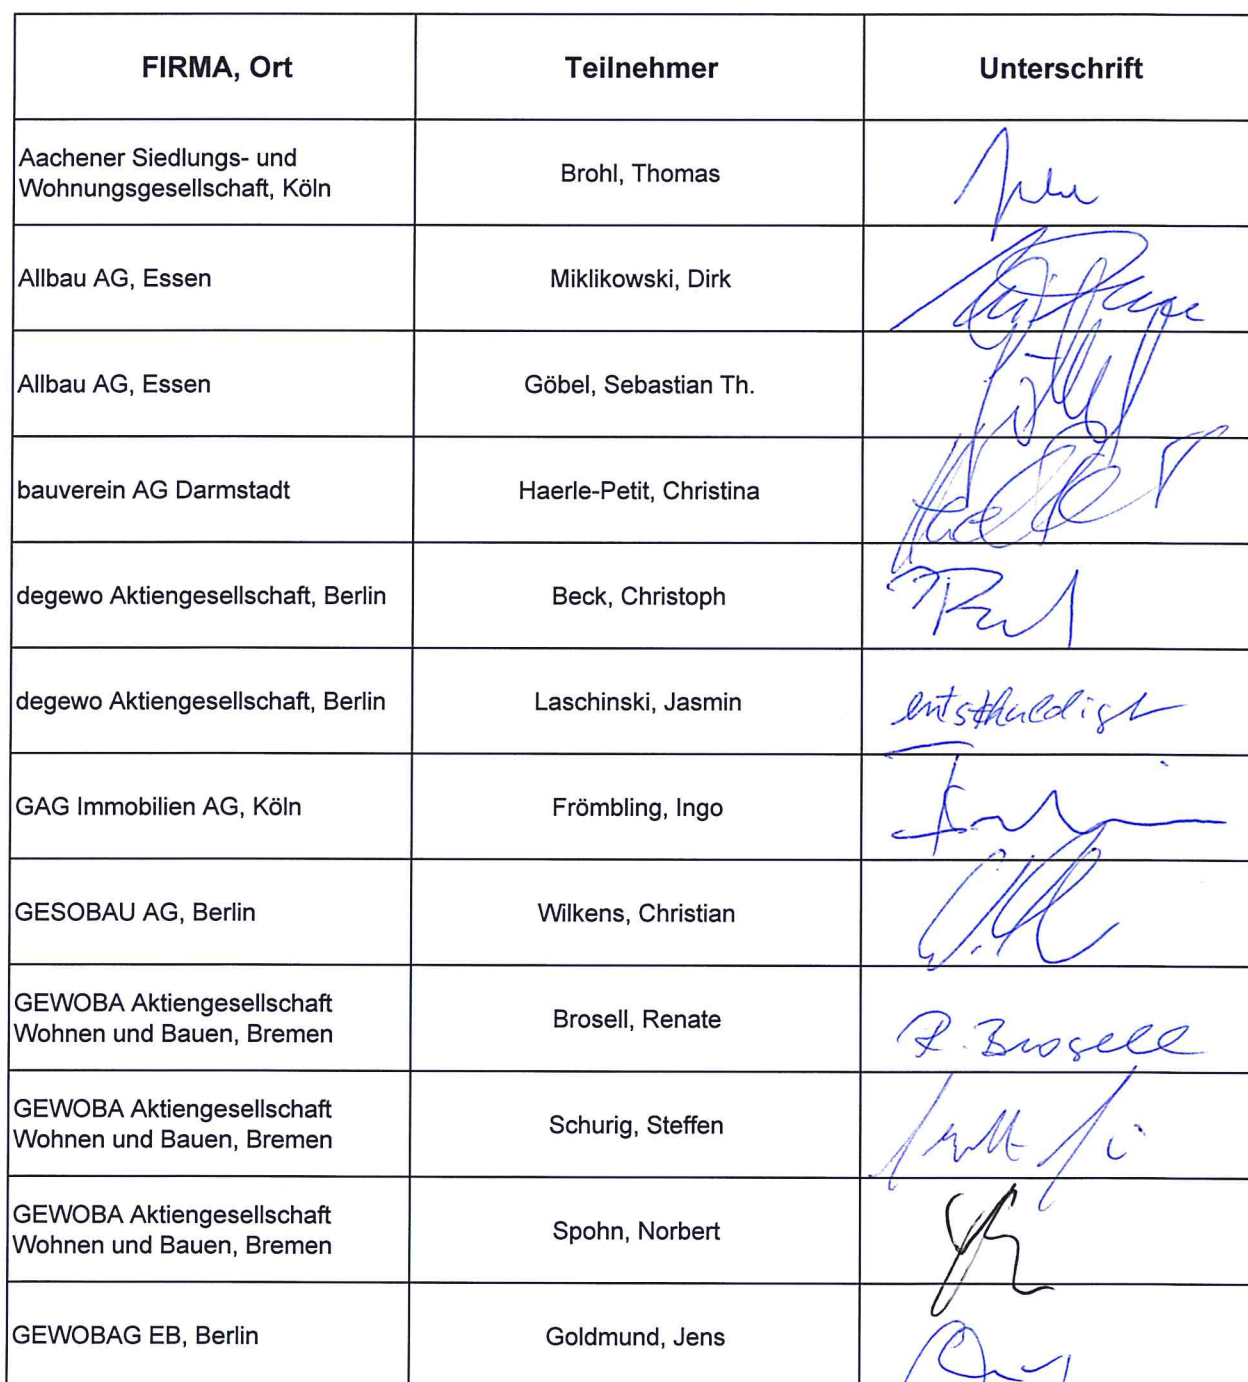 FIRMA, Ort Teilnehmer Unterschrift
Aachener Siedlungs- und
Wohnungsgesellschaft, Köln Brohl, Thomas
Allbau AG, Essen Miklikowski, Dirk
Allbau AG, Essen Göbel, Sebastian Th.
bauverein AG Darmstadt Haerle-Petit, Christina
degewo Aktiengesellschaft, Berlin Beck, Christoph
degewo Aktiengesellschaft, Berlin Laschinski, Jasmin entschuldigt
GAG Immobilien AG, Köln Frömbling, Ingo
GESOBAU AG, Berlin Wilkens, Christian
GEWOBA Aktiengesellschaft
Wohnen und Bauen, Bremen Brosell, Renate R. Brosell
GEWOBA Aktiengesellschaft
Wohnen und Bauen, Bremen Schurig, Steffen
GEWOBA Aktiengesellschaft
Wohnen und Bauen, Bremen Spohn, Norbert
GEWOBAG EB, Berlin Goldmund, Jens